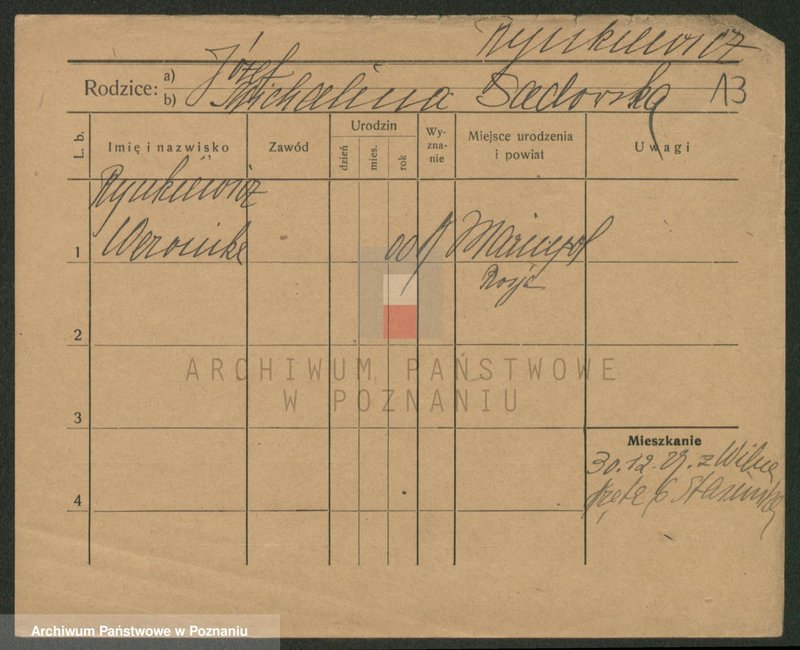 Rynkiewicz
Rodzice: a) Józef
b) Michalina Sadowska 13
L. b. Imię i nazwisko Zawód Urodzin dzień mies. rok Wy-zna-nie Miejsce urodzenia i powiat Uwagi
Rynkiewicz
1 Weronika - 00
Rosja
2
ARCHIWUM PAŃSTWOWE
W POZNANIU
3
Mieszkanie
30.12. z Wilna
4 6
Archiwum Państwowe w Poznaniu